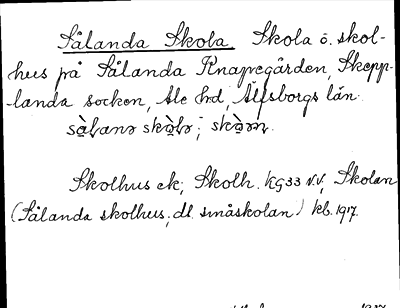 Sålanda Skola. Skola o. skol-
hus på Sålanda Knapegården, Skepp-
landa socken, Ale hd, Älfsborgs län.
Skolhus ek; Skolh. KG33 N.V; Skolan
(Sålanda skolhus, dl. småskolan) kb. 1917.